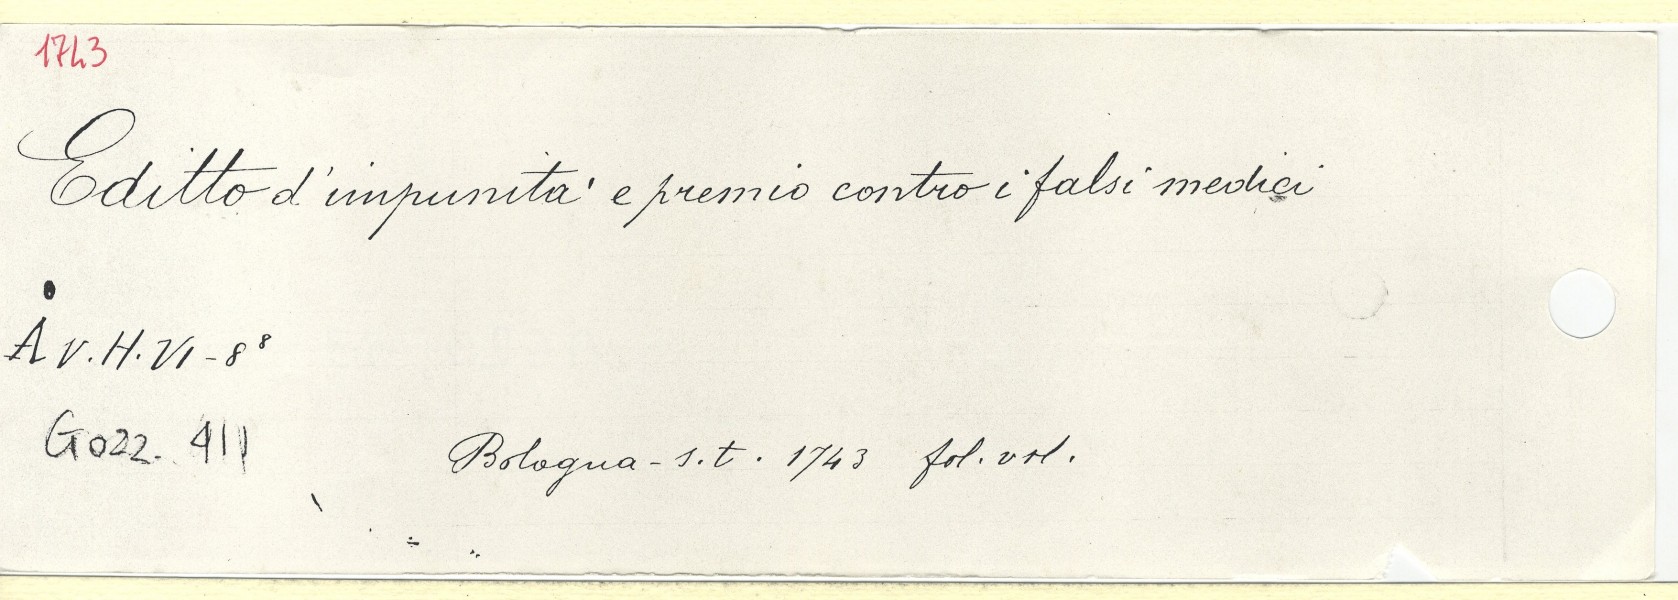 1743
Editto d'impunita' e premio contro i falsi medici
A V. H. VI - 8⁸
Gozz. 411
Bologna - s. t. 1743 fol. vol.